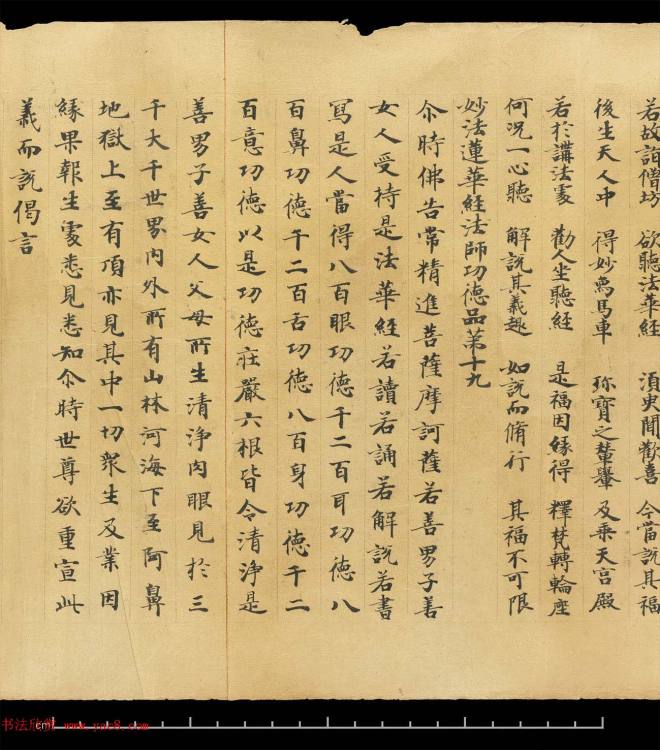 若故詣僧坊 欲聽法華經 須臾聞歡喜 今當說其福
後生天人中 得妙象馬車 珎寶之輦轝 及乗天宮殿
若於講法處 勸人坐聽經 是福因緣得 釋梵轉輪座
何况一心聽 解說其義趣 如說而脩行 其福不可限
妙法蓮華經法師功德品第十九
尒時佛告常精進菩薩摩訶薩若善男子善
女人受持是法華經若讀若誦若解說若書
寫是人當得八百眼功德千二百耳功德八
百鼻功德千二百舌功德八百身功德千二
百意功德以是功德莊嚴六根皆令清淨是
善男子善女人父母所生清淨肉眼見於三
千大千世界内外所有山林河海下至阿鼻
地獄上至有頂亦見其中一切衆生及業因
緣果報生處悉見悉知尒時世尊欲重宣此
義而說偈言
cm 1
书法欣赏 www.yac8.com